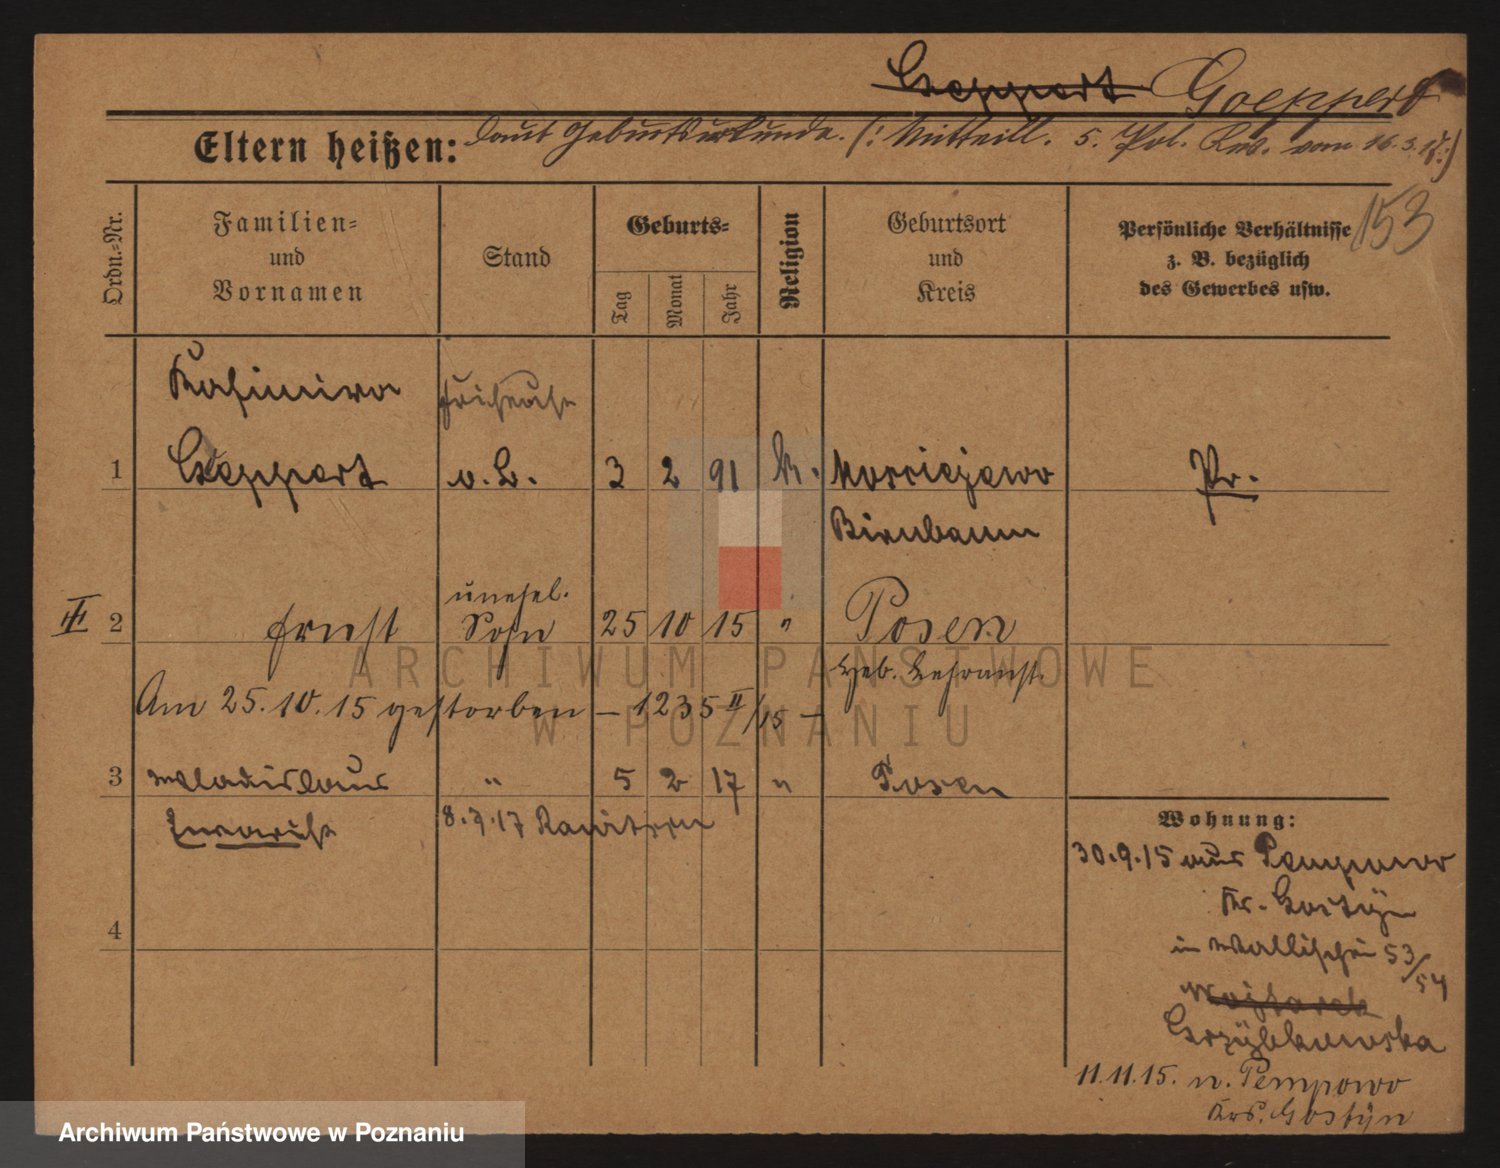 Geppert Goeppert
Eltern heißen: laut Geburtsurkunde. (: Mitteil. 5. Pol. Rev. vom 16.3.17:)
153
Ordn.-Nr.
Familien-
und
Vornamen
Stand
Geburts-
Tag
Monat
Jahr
Religion
Geburtsort
und
Kreis
Persönliche Verhältnisse
z. B. bezüglich
des Gewerbes usw.
Kasimira
1 Geppert o. B. 3 2 91 k. Marciejewo Pr.
Birnbaum
unehel.
II 2 Ernst Sohn 25 10 15 " Posen
Heb. Lehranst.
Am 25.10.15 gestorben – 1235 II/15 –
3 Wladislaus " 5 2 17 " Posen
8.3.17 Rawitsch
4
Wohnung:
30.9.15 aus Pempowo
Kr. Gostyn
in Wallischei 53/54
Grzybkowska
11.11.15. n. Pempowo
Krs. Gostyn
ARCHIWUM PAŃSTWOWE
W POZNANIU
Archiwum Państwowe w Poznaniu